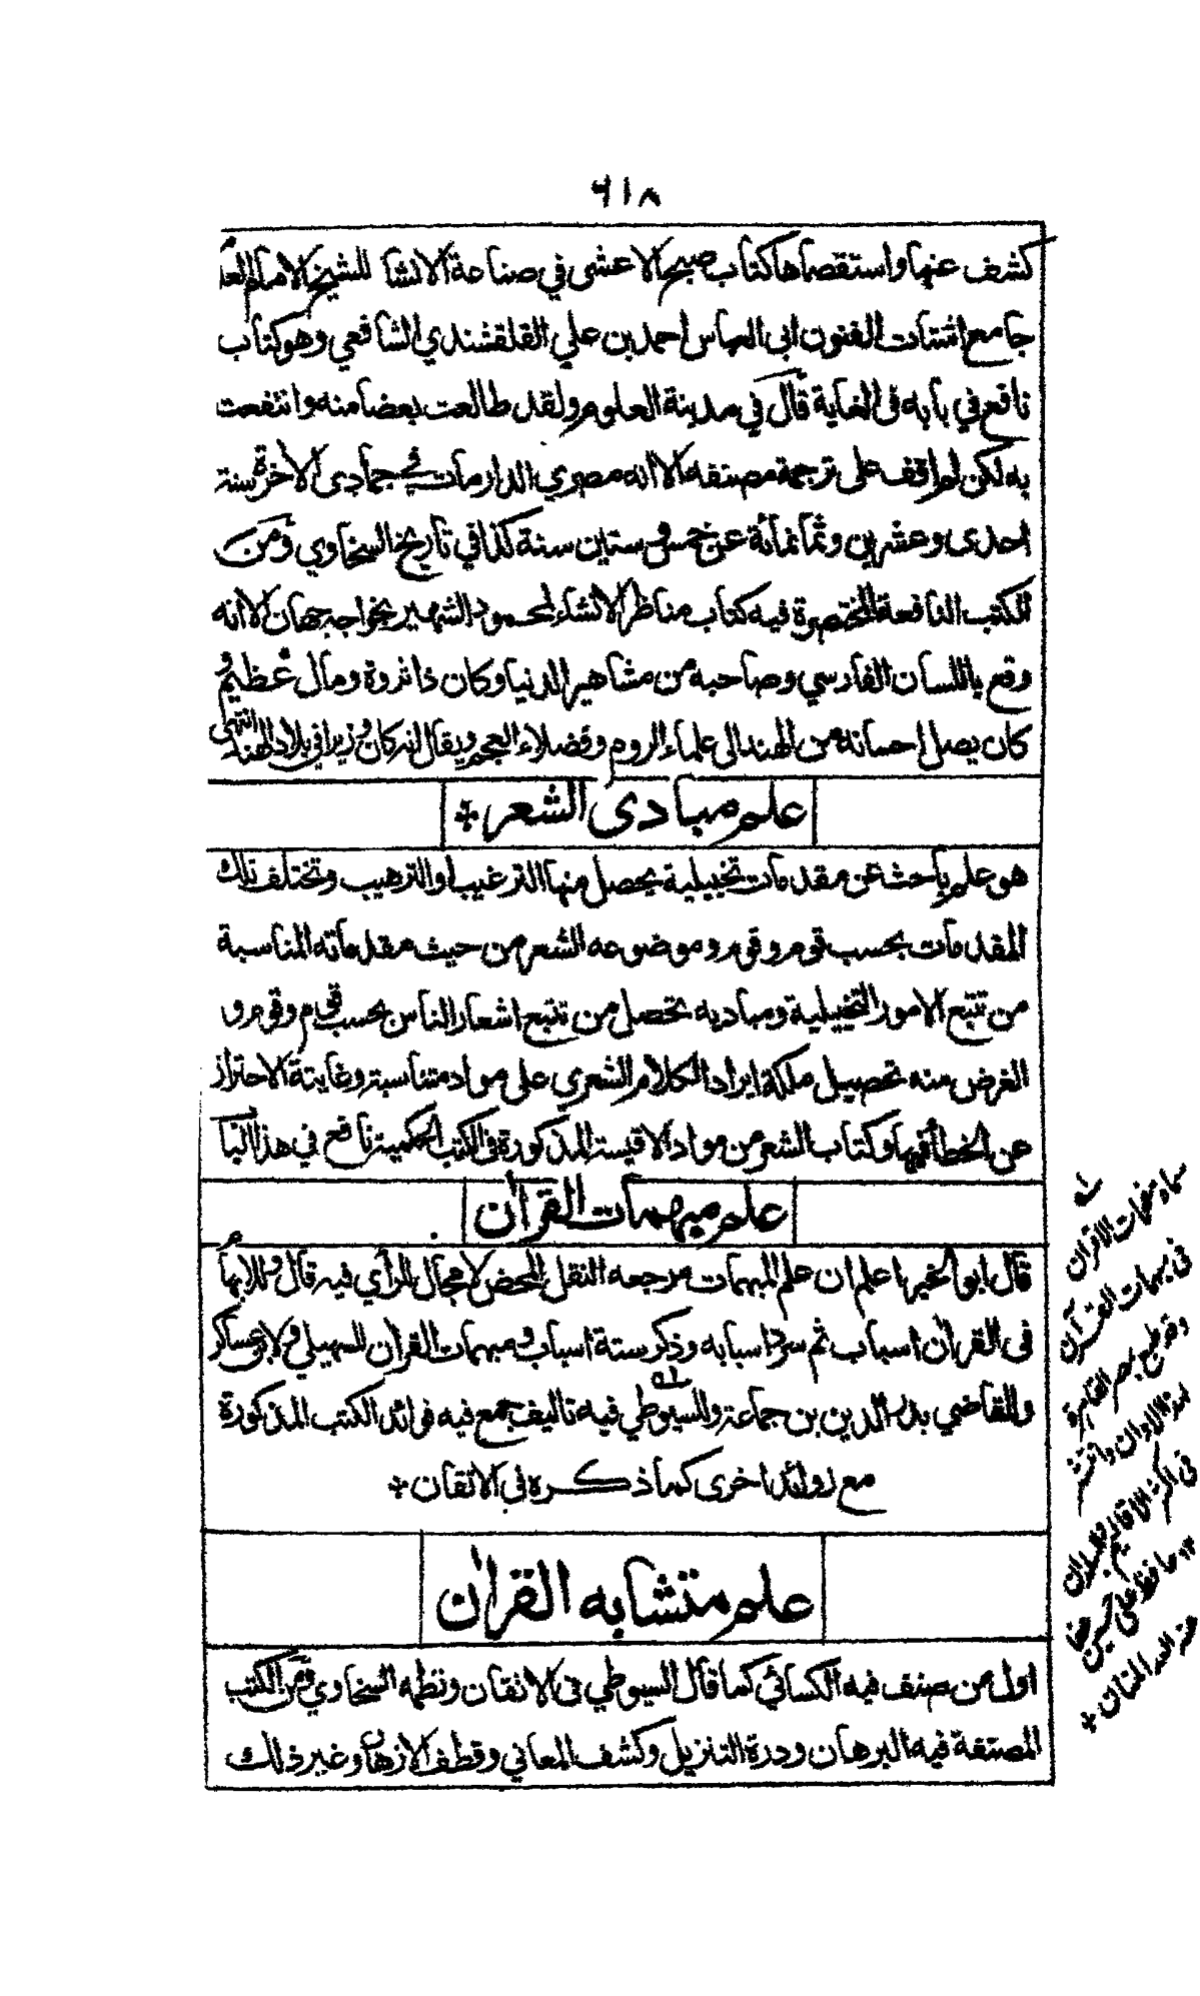 ٦١٨
كشف عنها واستقصاها كتاب صبح الاعشى في صناعة الانشا للشيخ الامام العلا
جامع اشتات الفنون ابى العباس احمد بن علي القلقشندي الشافعي وهو كتاب
نافع في بابه فى الغاية قال في مدينة العلوم ولقد طالعت بعضا منه وانتفعت
به لكن لم اقف على ترجمة مصنفه الا انه مصري الدار مات في جمادى الاخرة سنة
احدى وعشرين وثمانمائة عن خمس وستين سنة كذا في تاريخ السخاوي ومن
الكتب النافعة المختصرة فيه كتاب مناظر الانشاء لمحمود الشهير بخواجه جهان الا انه
وقع باللسان الفارسي وصاحبه من مشاهير الدنيا وكان ذا ثروة ومال عظيم و
كان يصل احسانه من الهند الى علماء الروم وفضلاء العجم ويقال انه كان وزيرا في بلاد الهند انتهى
علم مبادى الشعر +
هو علم باحث عن مقدمات تخييلية يحصل منها الترغيب او الترهيب وتختلف تلك
المقدمات بحسب قوم وقوم وموضوعه الشعر من حيث مقدماته المناسبة
من تتبع الامور التخييلية ومباديه تحصل من تتبع اشعار الناس بحسب قوم وقوم و
الغرض منه تحصيل ملكة ايراد الكلام الشعري على مواد متناسبة وغايته الاحتراز
عن الخطأ فيها وكتاب الشعر من مواد الاقيسة المذكورة فى الكتب الحكمية نافع في هذا البا
علم مبهمات القران
قال ابو الخير اعلم ان علم المبهمات مرجعه النقل المحض لا مجال للرأي فيه قال وللابهام
فى القران اسباب ثم سرد اسبابه وذكر ستة اسباب ومبهمات القران للسهيلي ولابن عساكر
وللقاضي بدر الدين بن جماعة وللسيوطي فيه تاليف جمع فيه فوائد الكتب المذكورة
مع زوائد اخرى كما ذكره فى الاتقان +
علم متشابه القران
اول من صنف فيه الكسائي كما قال السيوطي فى الاتقان ونظمه السخاوي ومن الكتب
المصنفة فيه البرهان ودرة التنزيل وكشف المعاني وقطف الازهار وغير ذلك
سماه مفحمات الاقران
فى مبهمات القرآن
وقد طبع بمصر القاهرة